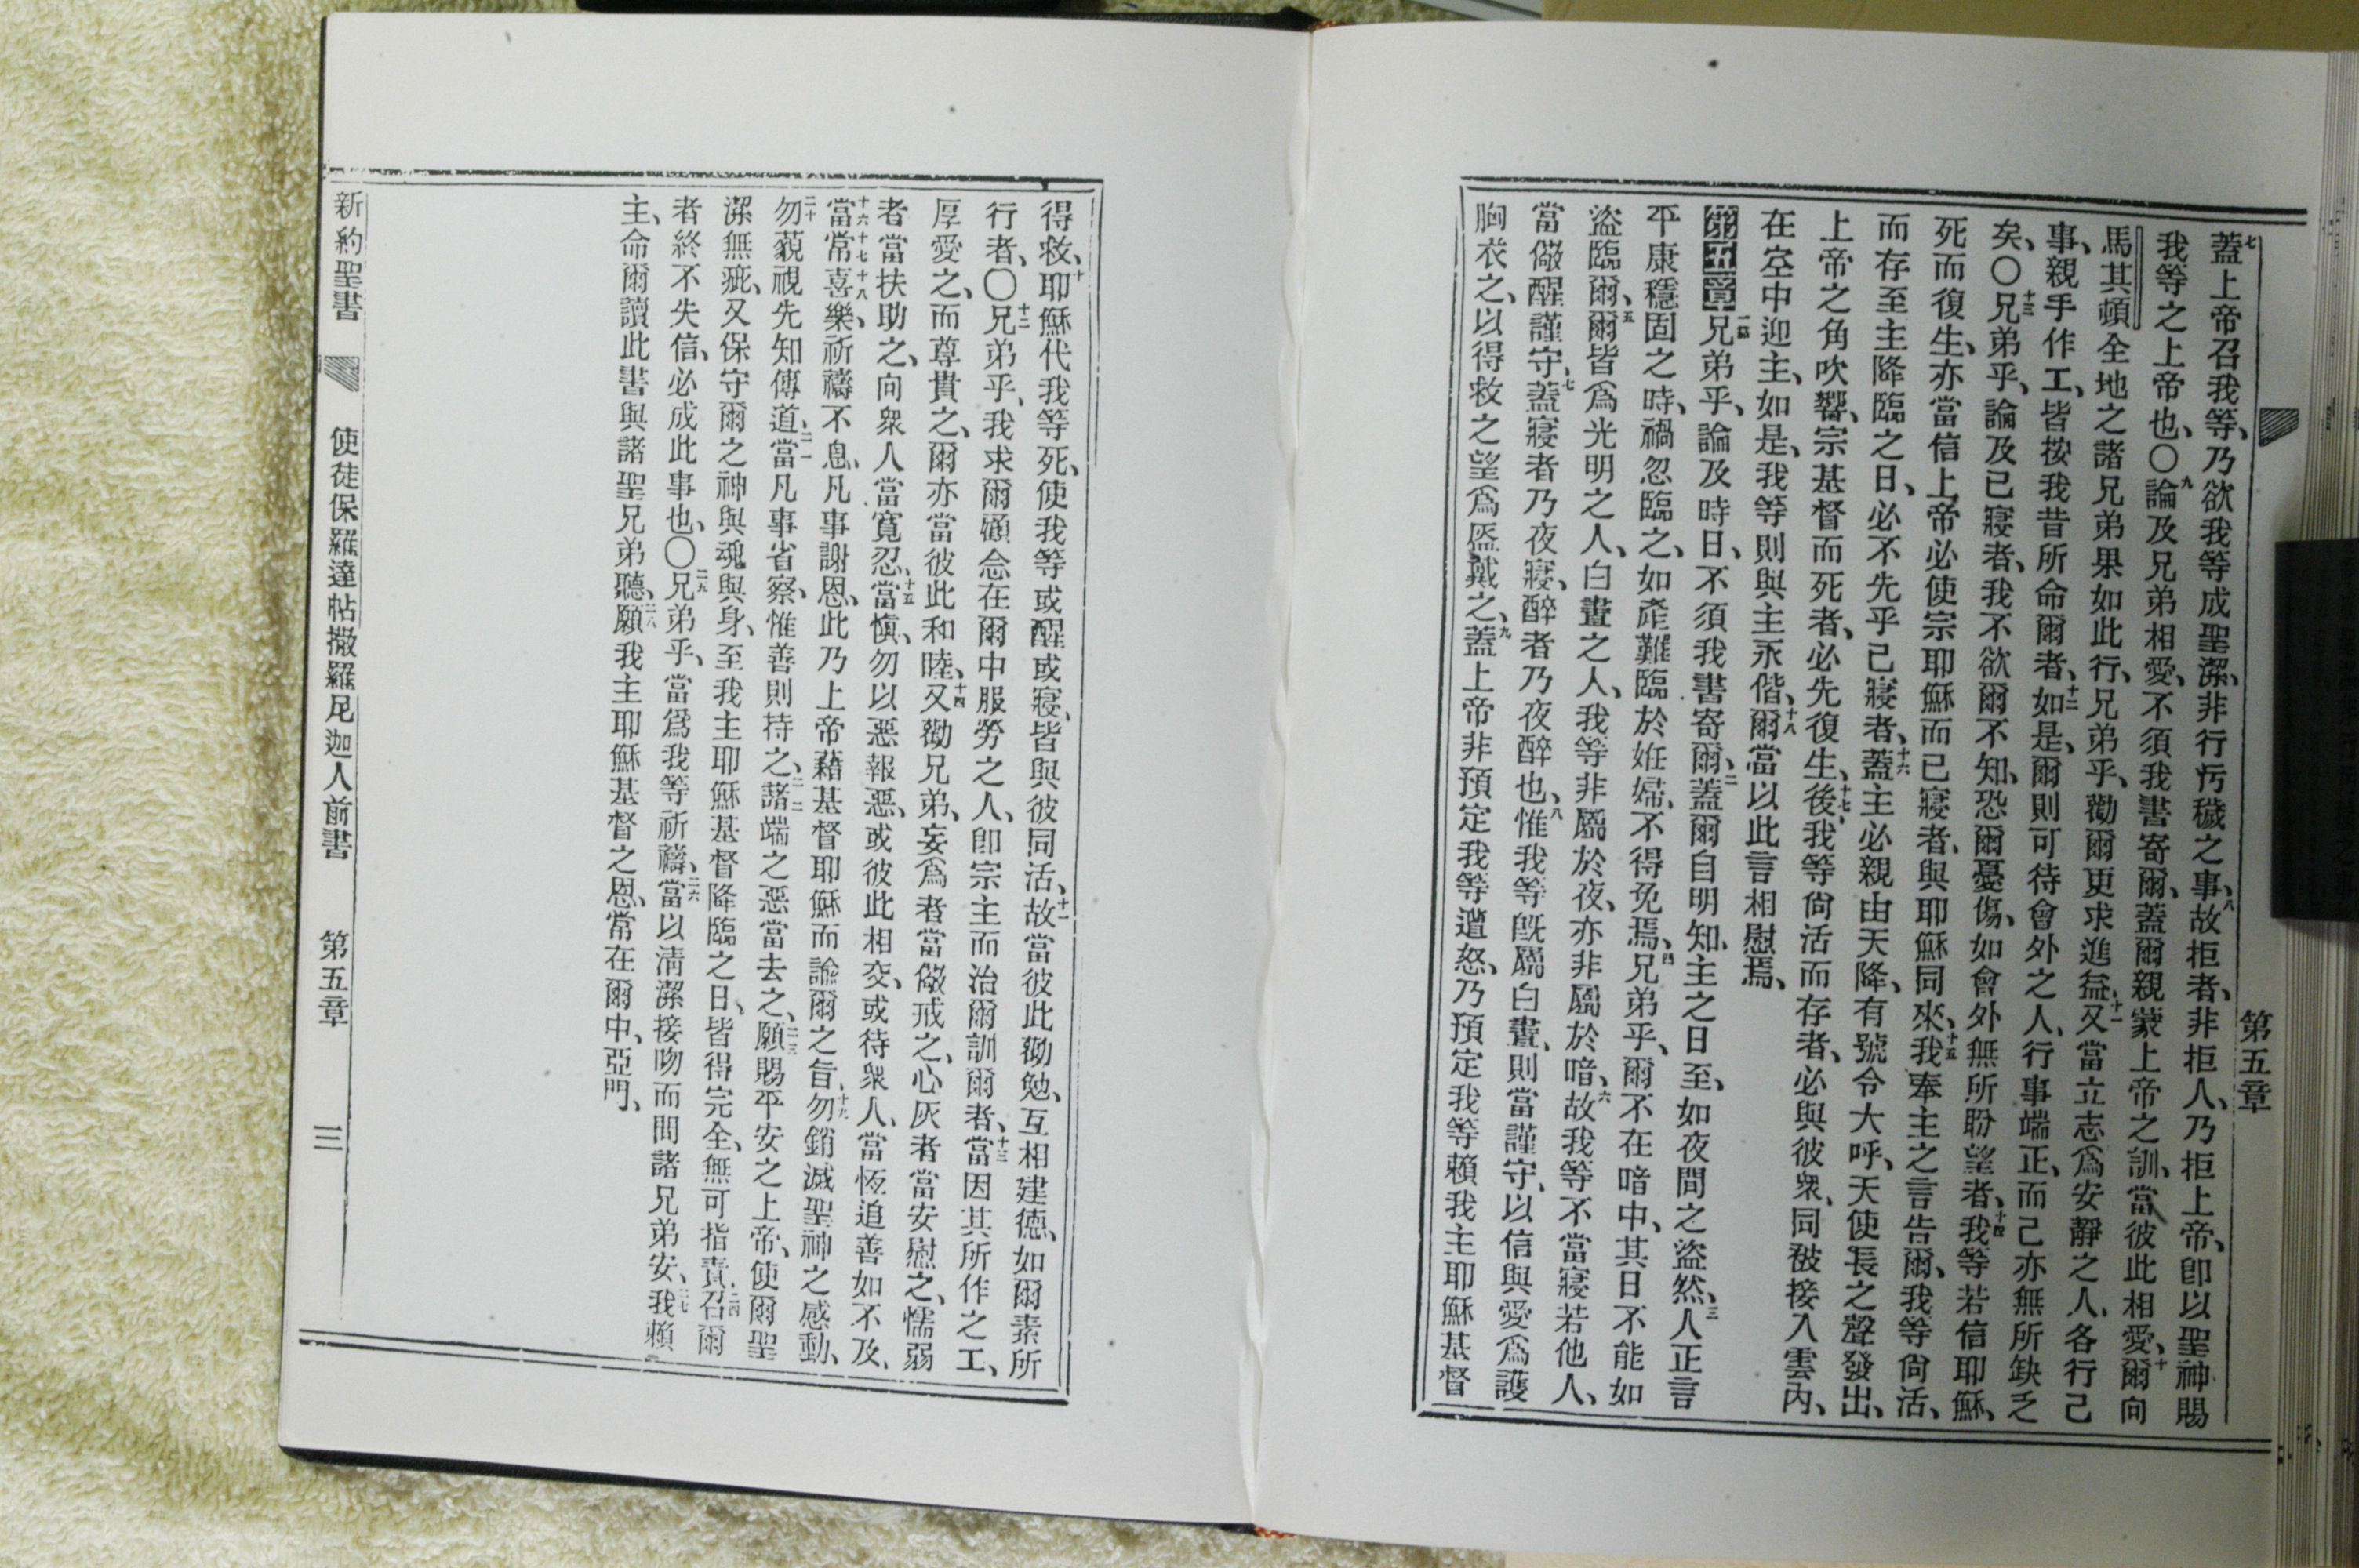 第五章
七蓋上帝召我等、乃欲我等成聖潔、非行污穢之事、八故拒者、非拒人、乃拒上帝、卽以聖神賜
我等之上帝也、〇九論及兄弟相愛、不須我書寄爾、蓋爾親蒙上帝之訓、當彼此相愛、十爾向
馬其頓全地之諸兄弟果如此行、兄弟乎、勸爾更求進益、十一又當立志爲安靜之人、各行己
事、親手作工、皆按我昔所命爾者、十二如是、爾則可待會外之人、行事端正、而己亦無所缺乏
矣、〇十三兄弟乎、論及已寢者、我不欲爾不知、恐爾憂傷、如會外無所盼望者、十四我等若信耶穌、
死而復生、亦當信上帝必使宗耶穌而已寢者、與耶穌同來、十五我奉主之言告爾、我等尙活、
而存至主降臨之日、必不先乎已寢者、十六蓋主必親由天降、有號令大呼、天使長之聲發出、
上帝之角吹響、宗基督而死者、必先復生、十七後、我等尙活而存者、必與彼衆、同被接入雲內、
在空中迎主、如是、我等則與主永偕、十八爾當以此言相慰焉、
第五章一節兄弟乎、論及時日、不須我書寄爾、二蓋爾自明知、主之日至、如夜間之盜然、三人正言
平康穩固之時、禍忽臨之、如產難臨於姙婦、不得免焉、四兄弟乎、爾不在暗中、其日不能如
盜臨爾、五爾皆爲光明之人、白晝之人、我等非屬於夜、亦非屬於暗、六故我等不當寢若他人、
當儆醒謹守、七蓋寢者乃夜寢、醉者乃夜醉也、八惟我等旣屬白晝、則當謹守、以信與愛爲護
胸衣之、以得救之望爲盔戴之、九蓋上帝非預定我等遭怒、乃預定我等賴我主耶穌基督
得救、十耶穌代我等死、使我等或醒或寢、皆與彼同活、十一故當彼此勸勉、互相建德、如爾素所
行者、〇十二兄弟乎、我求爾顧念在爾中服勞之人、卽宗主而治爾訓爾者、十三當因其所作之工、
厚愛之、而尊貴之、爾亦當彼此和睦、十四又勸兄弟、妄爲者當儆戒之、心灰者當安慰之、懦弱
者當扶助之、向衆人當寬忍、十五當愼、勿以惡報惡、或彼此相交、或待衆人、當恆追善如不及、
十六當常十七十八喜樂、祈禱不息、凡事謝恩、此乃上帝藉基督耶穌而諭爾之旨、十九勿銷滅聖神之感動、
二十勿藐視先知傳道、二一當凡事省察、惟善則持之、二二諸端之惡當去之、二三願賜平安之上帝、使爾聖
潔無疵、又保守爾之神與魂與身、至我主耶穌基督降臨之日、皆得完全、無可指責、二四召爾
者終不失信、必成此事也、〇二五兄弟乎、當爲我等祈禱、二六當以淸潔接吻而問諸兄弟安、二七我賴
主、命爾讀此書與諸聖兄弟聽、二八願我主耶穌基督之恩、常在爾中、亞門、
新約聖書　使徒保羅達帖撒羅尼迦人前書　第五章　三